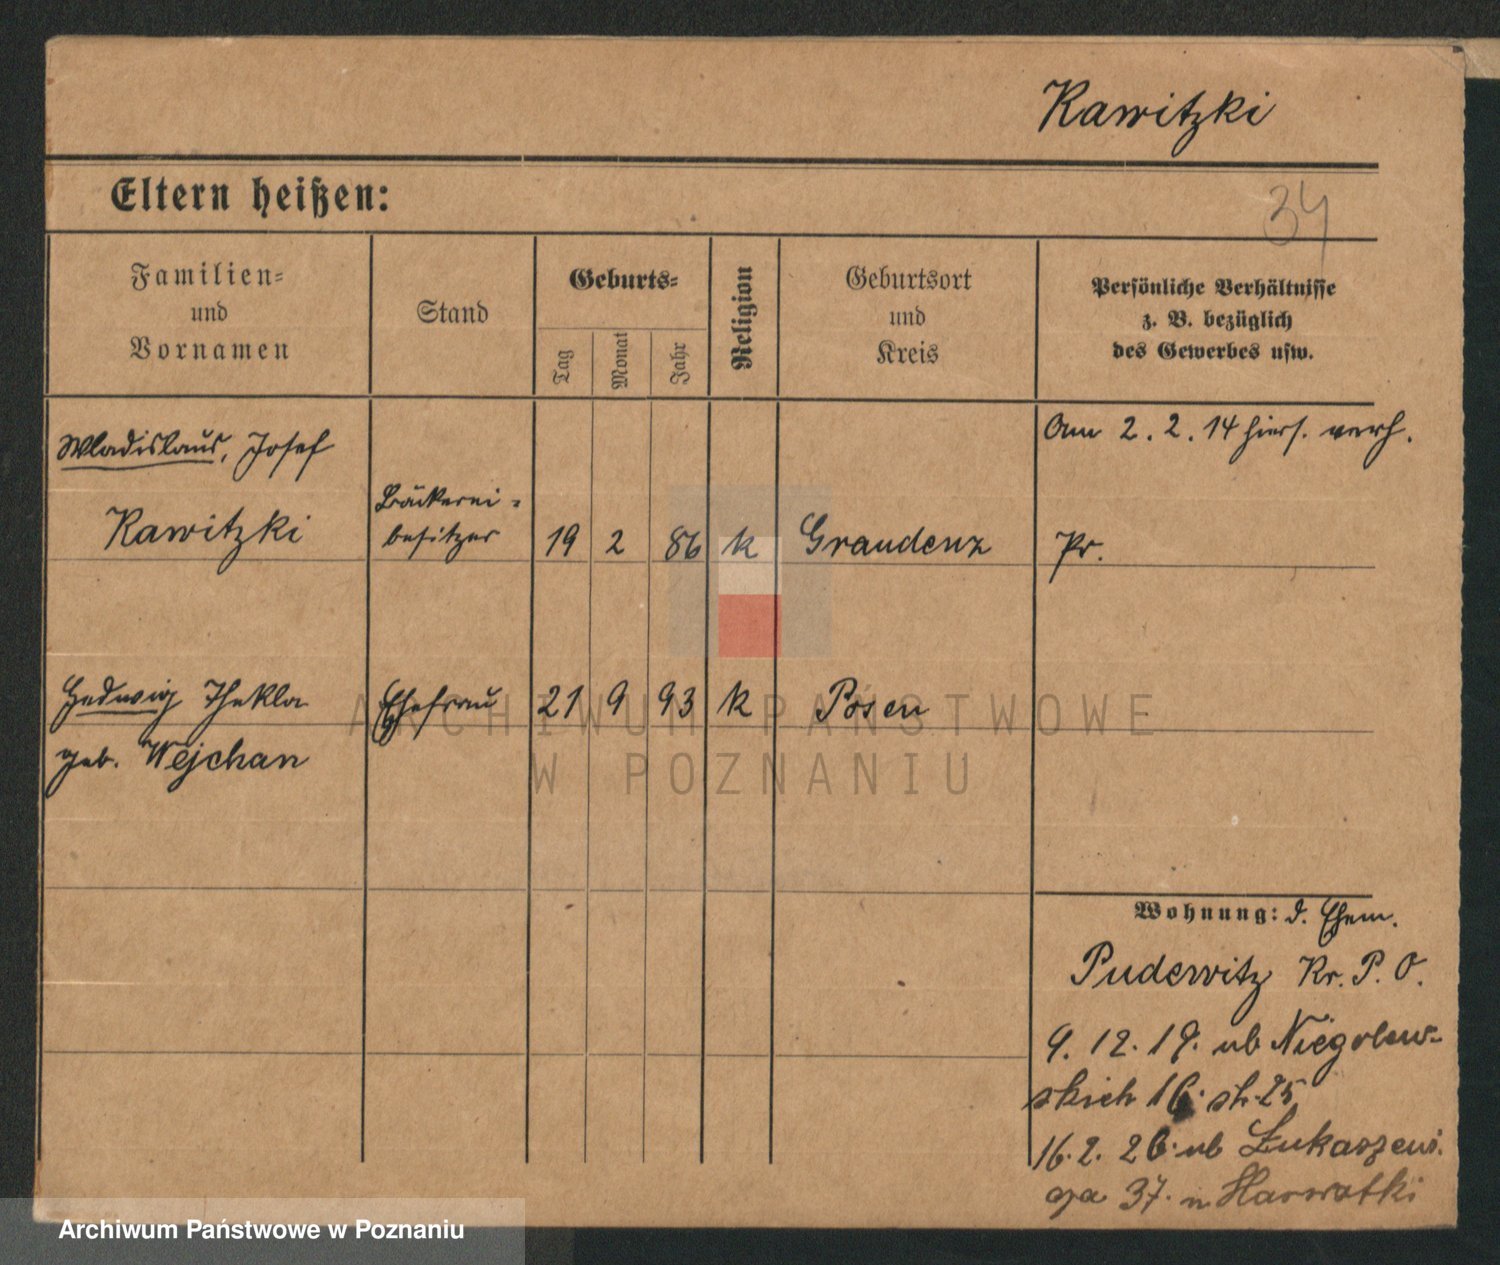 Rawitzki
Eltern heißen:
34
Familien-
und
Vornamen
Stand
Geburts-
Tag
Monat
Jahr
Religion
Geburtsort
und
Kreis
Persönliche Verhältnisse
z. B. bezüglich
des Gewerbes usw.
Wladislaus, Josef
Rawitzki
Bäckerei-
besitzer
19 2 86 k Graudenz
Am 2. 2. 14 hiers. verh.
Pr.
Hedwig Thekla
geb. Wejchan
Ehefrau 21 9 93 k Posen
Wohnung: d. Ehem.
Pudewitz Kr. P. O.
9. 12. 19. ub Niegolew-
skich 16. st. 25
16. 2. 26. ub Łukaszewi.
37.
ARCHIWUM PAŃSTWOWE
W POZNANIU
Archiwum Państwowe w Poznaniu